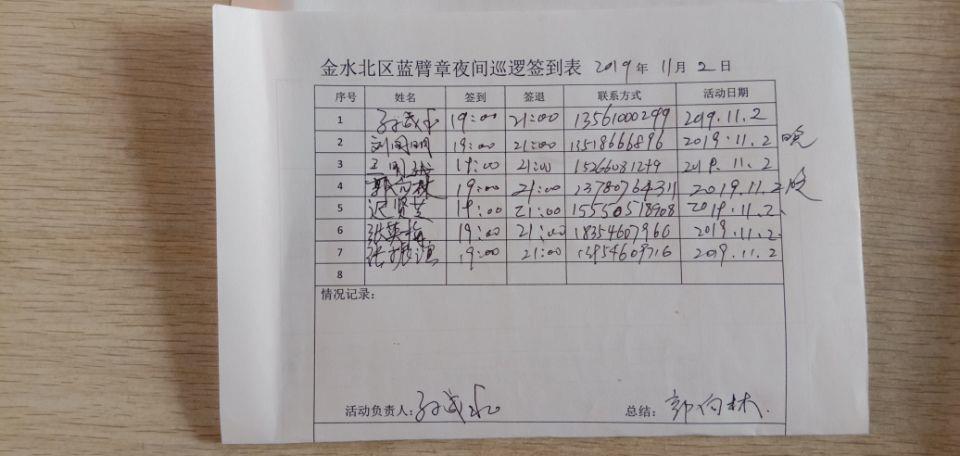 金水北区蓝臂章夜间巡逻签到表 2019年 11月 2日
序号 姓名 签到 签退 联系方式 活动日期
1 孙成 19:00 21:00 13561000299 2019.11.2
2 刘国明 19:00 21:00 13518666896 2019.11.2 晚
3 19:00 21:00 15266081249 2019.11.2
4 郭向林 19:00 21:00 13780764311 2019.11.2 晚
5 迟贤芝 19:00 21:00 15550518908 2019.11.2
6 张英梅 19:00 21:00 18354607966 2019.11.2
7 张 19:00 21:00 13954609716 2019.11.2
8
情况记录:
活动负责人: 孙成 总结: 郭向林.